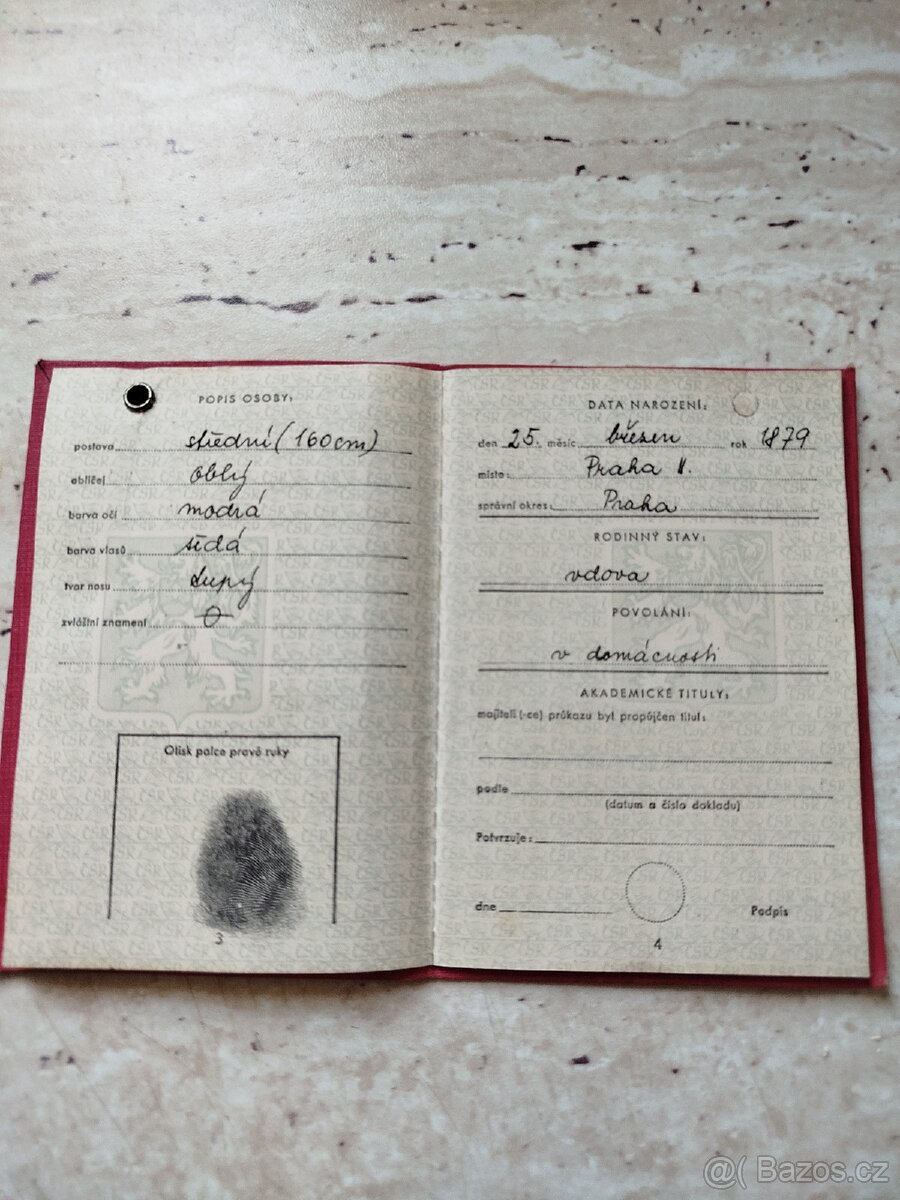 POPIS OSOBY:
postava střední (160cm)
obličej oblý
barva očí modrá
barva vlasů šedá
tvar nosu tupý
zvláštní znamení
Otisk palce pravé ruky
3
DATA NAROZENÍ:
den 25. měsíc březen rok 1879
místo: Praha II.
správní okres: Praha
RODINNÝ STAV:
vdova
POVOLÁNÍ:
v domácnosti
AKADEMICKÉ TITULY:
majiteli (-ce) průkazu byl propůjčen titul:
podle
(datum a číslo dokladu)
Potvrzuje:
dne Podpis
4
@( Bazos.cz